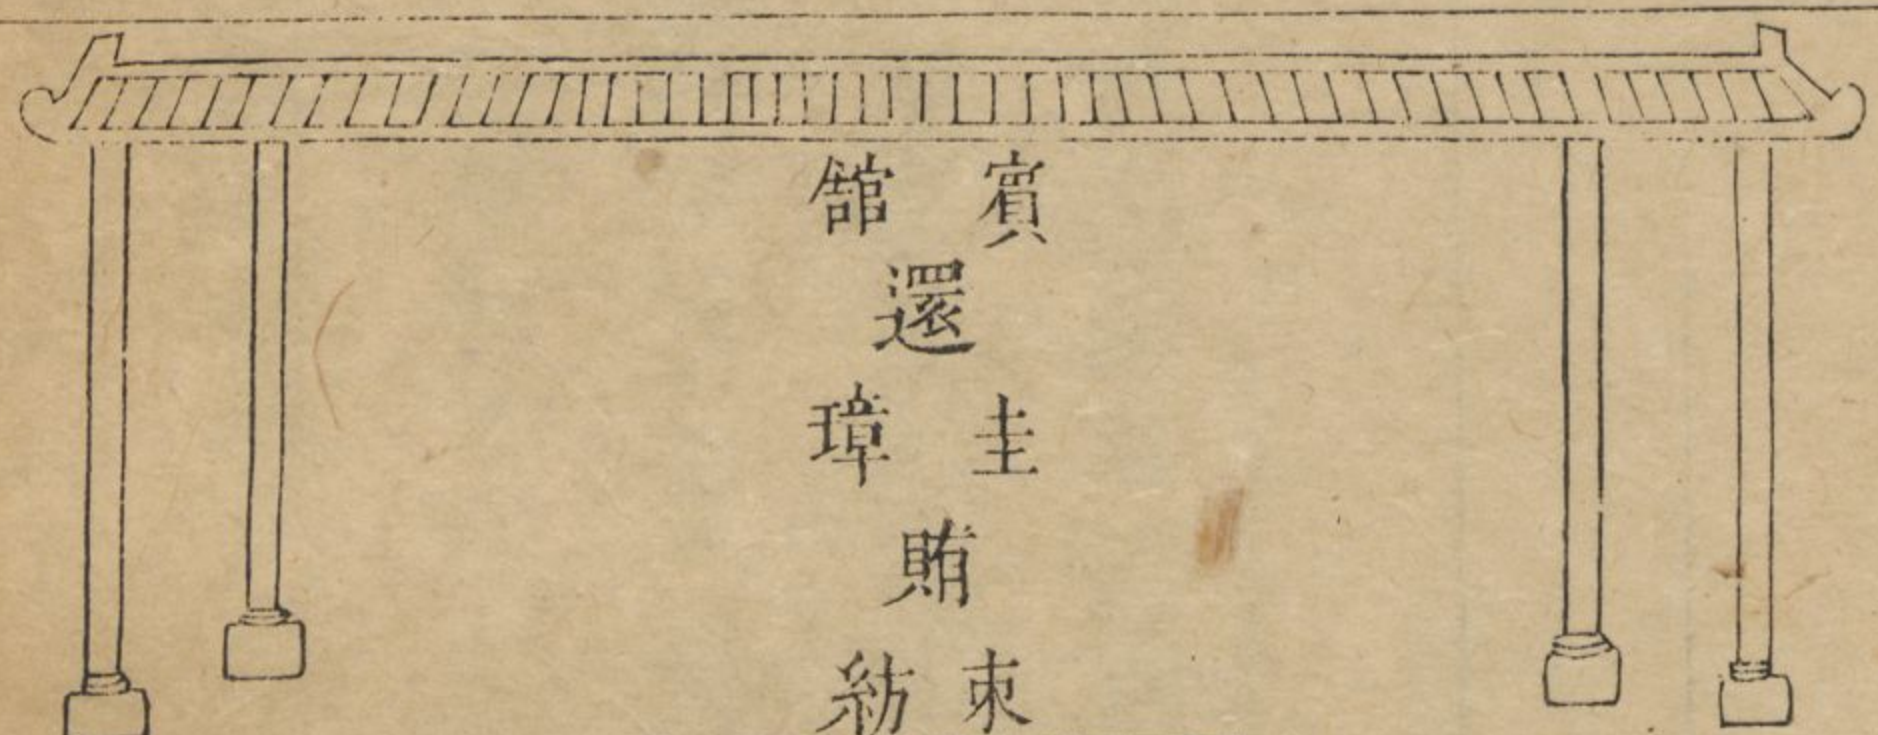 賔舘
還
圭璋
賄
束紡